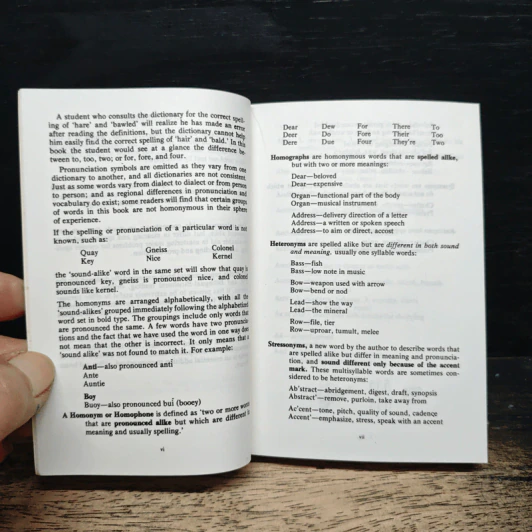 A student who consults the dictionary for the correct spell-
ing of 'hare' and 'bawled' will realize he has made an error
after reading the definitions, but the dictionary cannot help
him easily find the correct spelling of 'hair' and 'bald.' In this
book the student would see at a glance the difference be-
tween to, too, two; or for, fore, and four.
Pronunciation symbols are omitted as they vary from one
dictionary to another, and all dictionaries are not consistent.
Just as some words vary from dialect to dialect or from person
to person; and as regional differences in pronunciation and
vocabulary do exist; some readers will find that certain groups
of words in this book are not homonymous in their sphere
of experience.
If the spelling or pronunciation of a particular word is not
known, such as:
Quay Gneiss Colonel
Key Nice Kernel
the 'sound-alike' word in the same set will show that quay is
pronounced key, gneiss is pronounced nice, and colonel
sounds like kernel.
The homonyms are arranged alphabetically, with all the
'sound-alikes' grouped immediately following the alphabetical
word set in bold type. The groupings include only words that
are pronounced the same. A few words have two pronuncia-
tions and the fact that we have used the word in one way does
not mean that the other is incorrect. It only means that a
'sound alike' was not found to match it. For example:
Anti—also pronounced antī
Ante
Auntie
Boy
Buoy—also pronounced bui (booey)
A Homonym or Homophone is defined as 'two or more words
that are pronounced alike but which are different in
meaning and usually spelling.'
vi
Dear Dew For There To
Deer Do Fore Their Too
Dere Due Four They're Two
Homographs are homonymous words that are spelled alike,
but with two or more meanings:
Dear—beloved
Dear—expensive
Organ—functional part of the body
Organ—musical instrument
Address—delivery direction of a letter
Address—a written or spoken speech
Address—to aim or direct, accost
Heteronyms are spelled alike but are different in both sound
and meaning. usually one syllable words:
Bass—fish
Bass—low note in music
Bow—weapon used with arrow
Bow—bend or nod
Lead—show the way
Lead—the mineral
Row—file, tier
Row—uproar, tumult, melee
Stressonyms, a new word by the author to describe words that
are spelled alike but differ in meaning and pronuncia-
tion, and sound different only because of the accent
mark. These multisyllable words are sometimes con-
sidered to be heteronyms:
Ab'stract—abridgement, digest, draft, synopsis
Abstract'—remove, purloin, take away from
Ac'cent—tone, pitch, quality of sound, cadence
Accent'—emphasize, stress, speak with an accent
vii